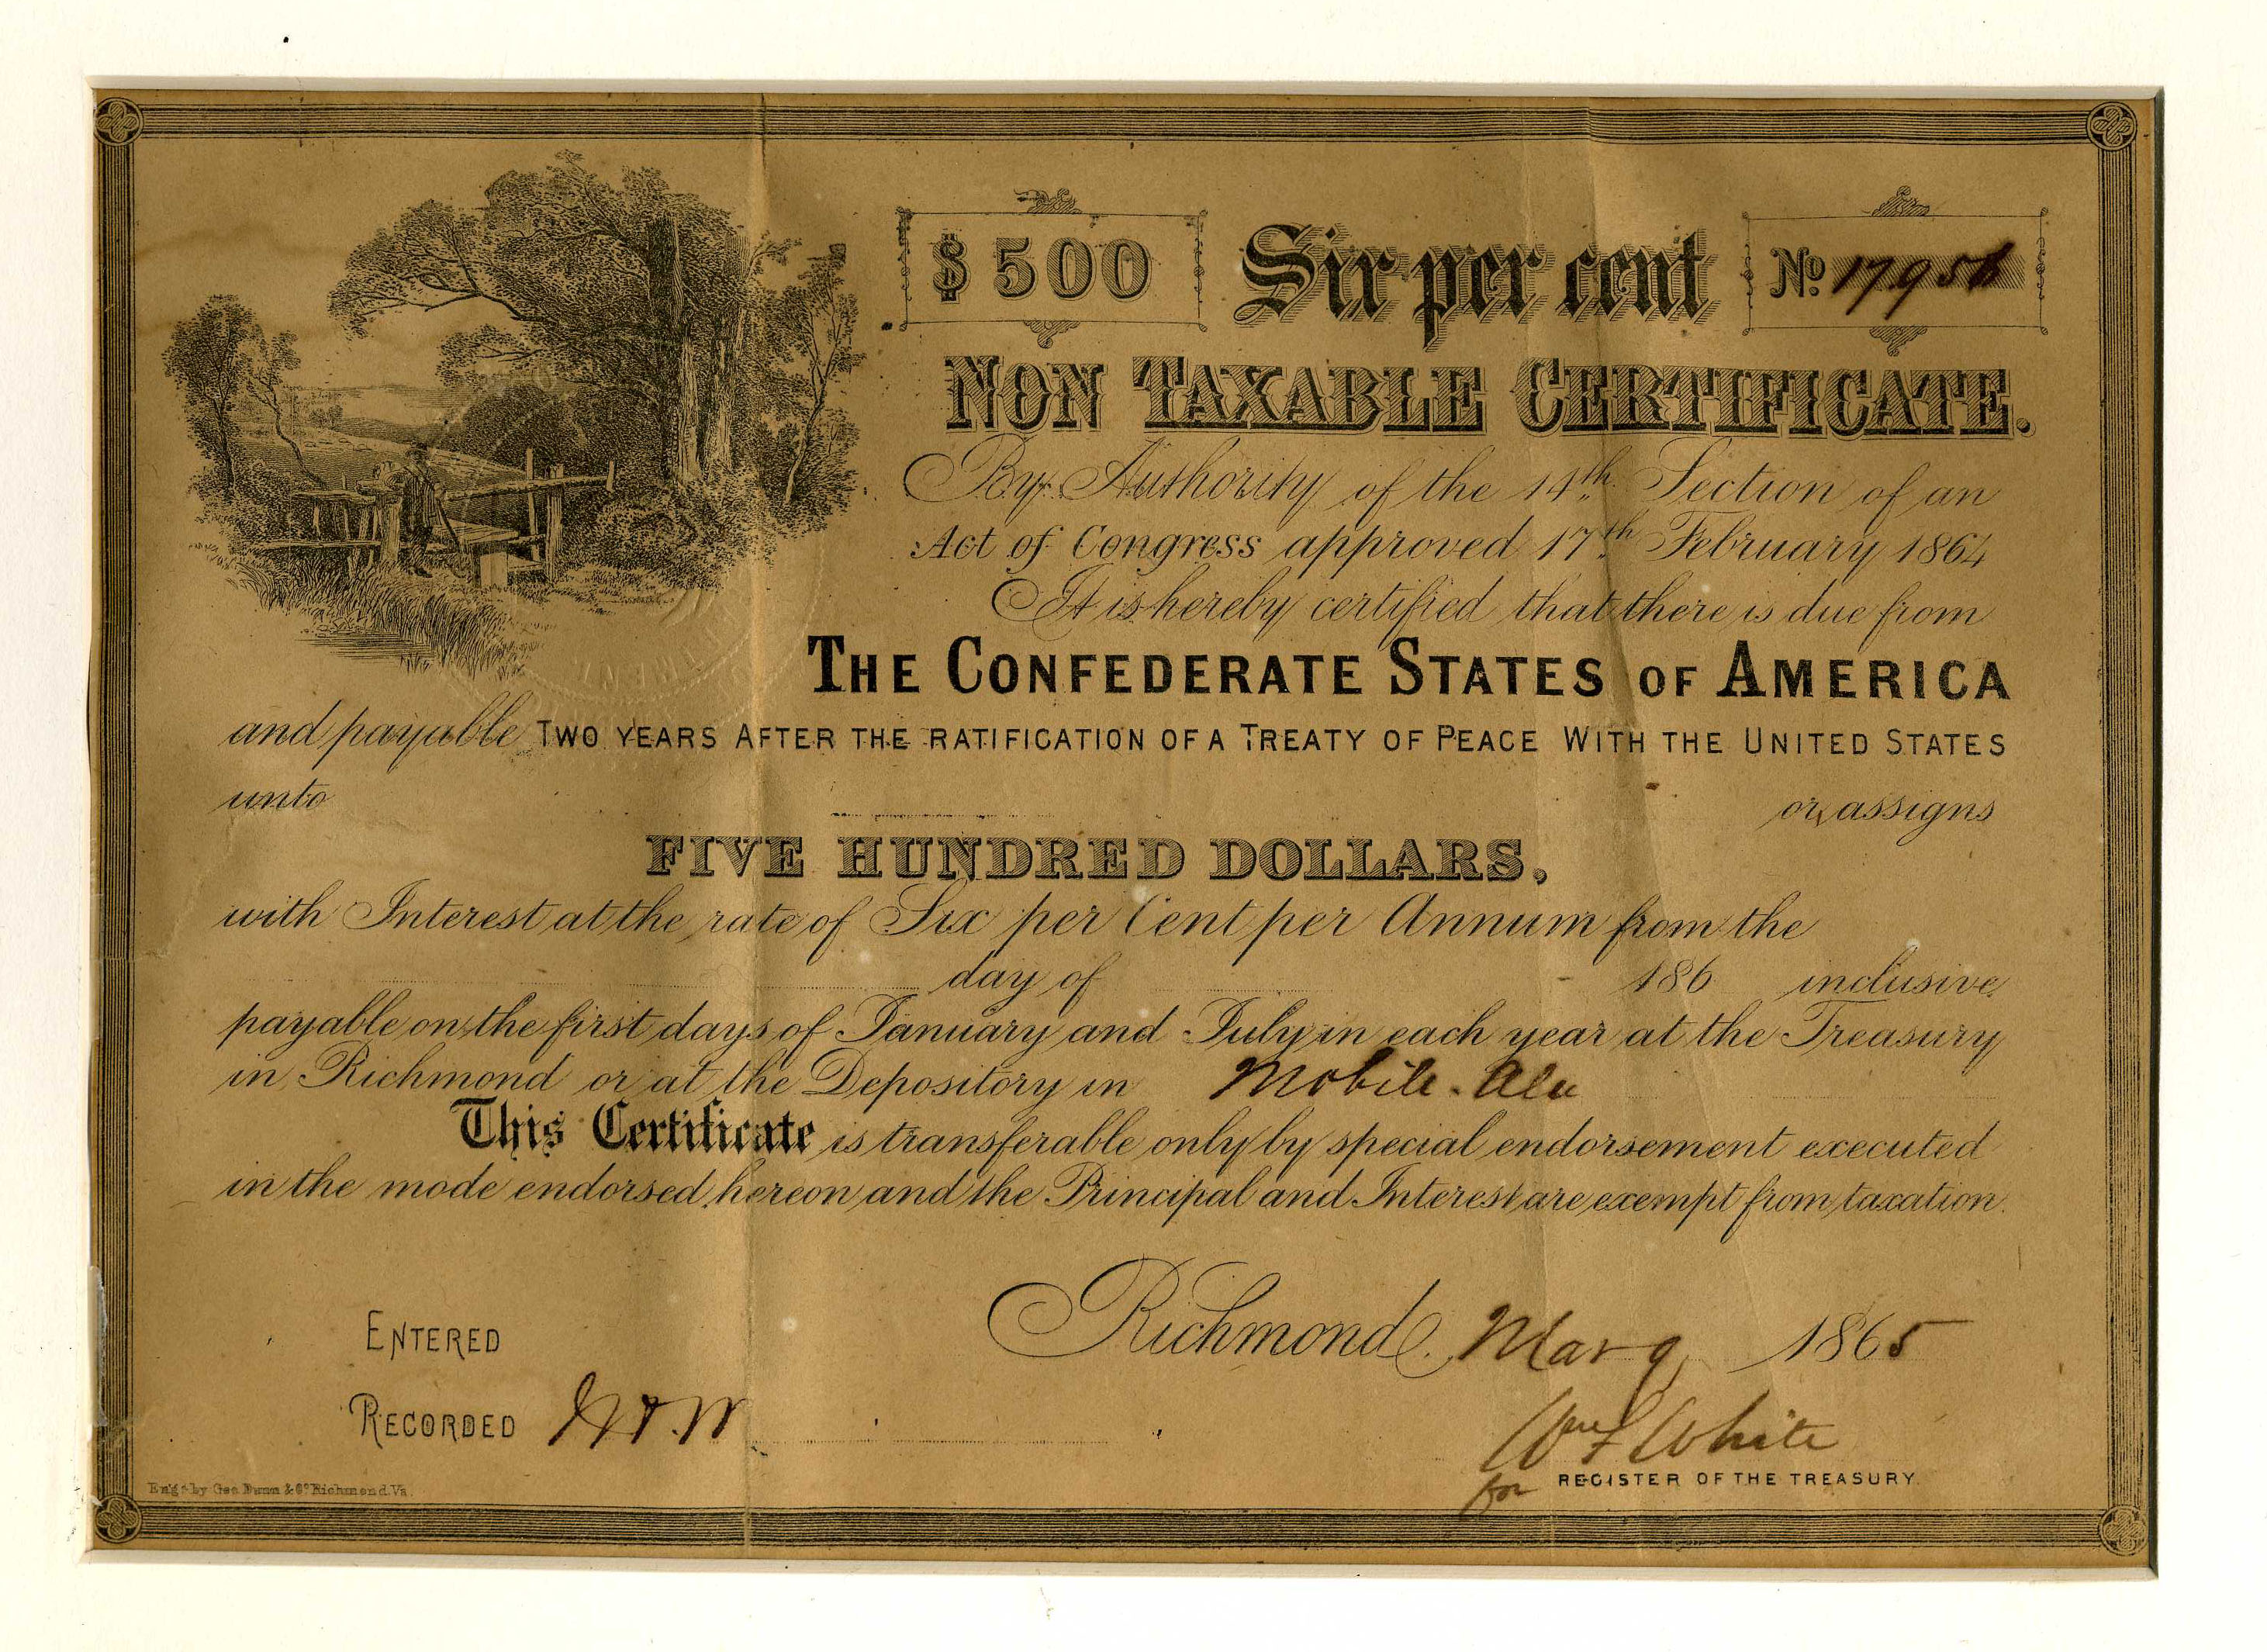 $ 500 Six per cent No 1795
NON TAXABLE CERTIFICATE.
By Authority of the 14th Section of an
Act of Congress approved 17th February 1864
It is hereby certified that there is due from
THE CONFEDERATE STATES OF AMERICA
and payable TWO YEARS AFTER THE RATIFICATION OF A TREATY OF PEACE WITH THE UNITED STATES
unto or assigns
FIVE HUNDRED DOLLARS.
with Interest at the rate of Six per Cent per Annum from the
day of 186 inclusive
payable on the first days of January and July in each year at the Treasury
in Richmond or at the Depository in Mobile. Ala
This Certificate is transferable only by special endorsement executed
in the mode endorsed hereon and the Principal and Interest are exempt from taxation.
Richmond Mar 9 1865
ENTERED
RECORDED
Wm F White
for REGISTER OF THE TREASURY
Eng'd by Geo. Dunn & Co Richmond. Va.